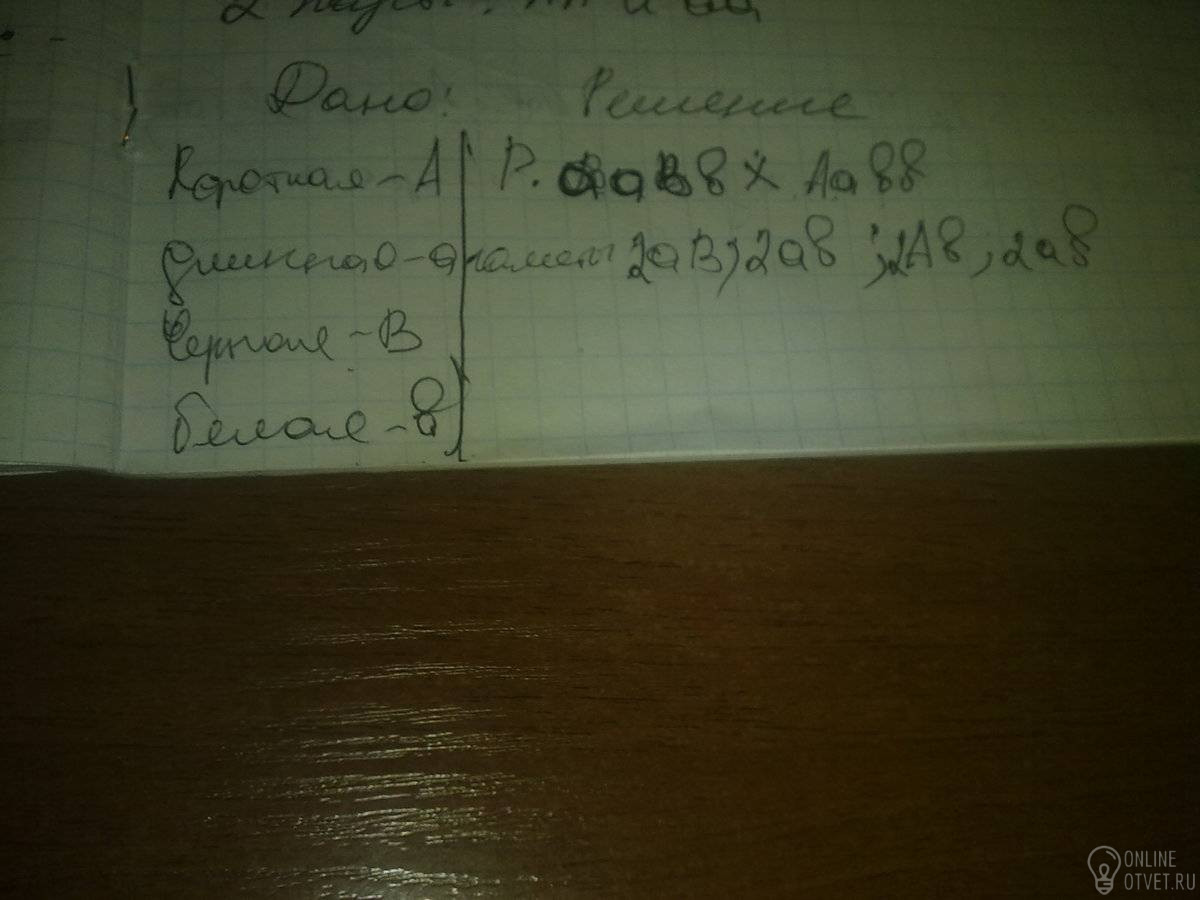 2
Дано: Решение
Короткая - А Р. ааВв х Аавв
длинная - а гаметы 2аВ; 2ав ; 2Ав ; 2ав
Черная - В
белая - в
ONLINE
OTVET.RU